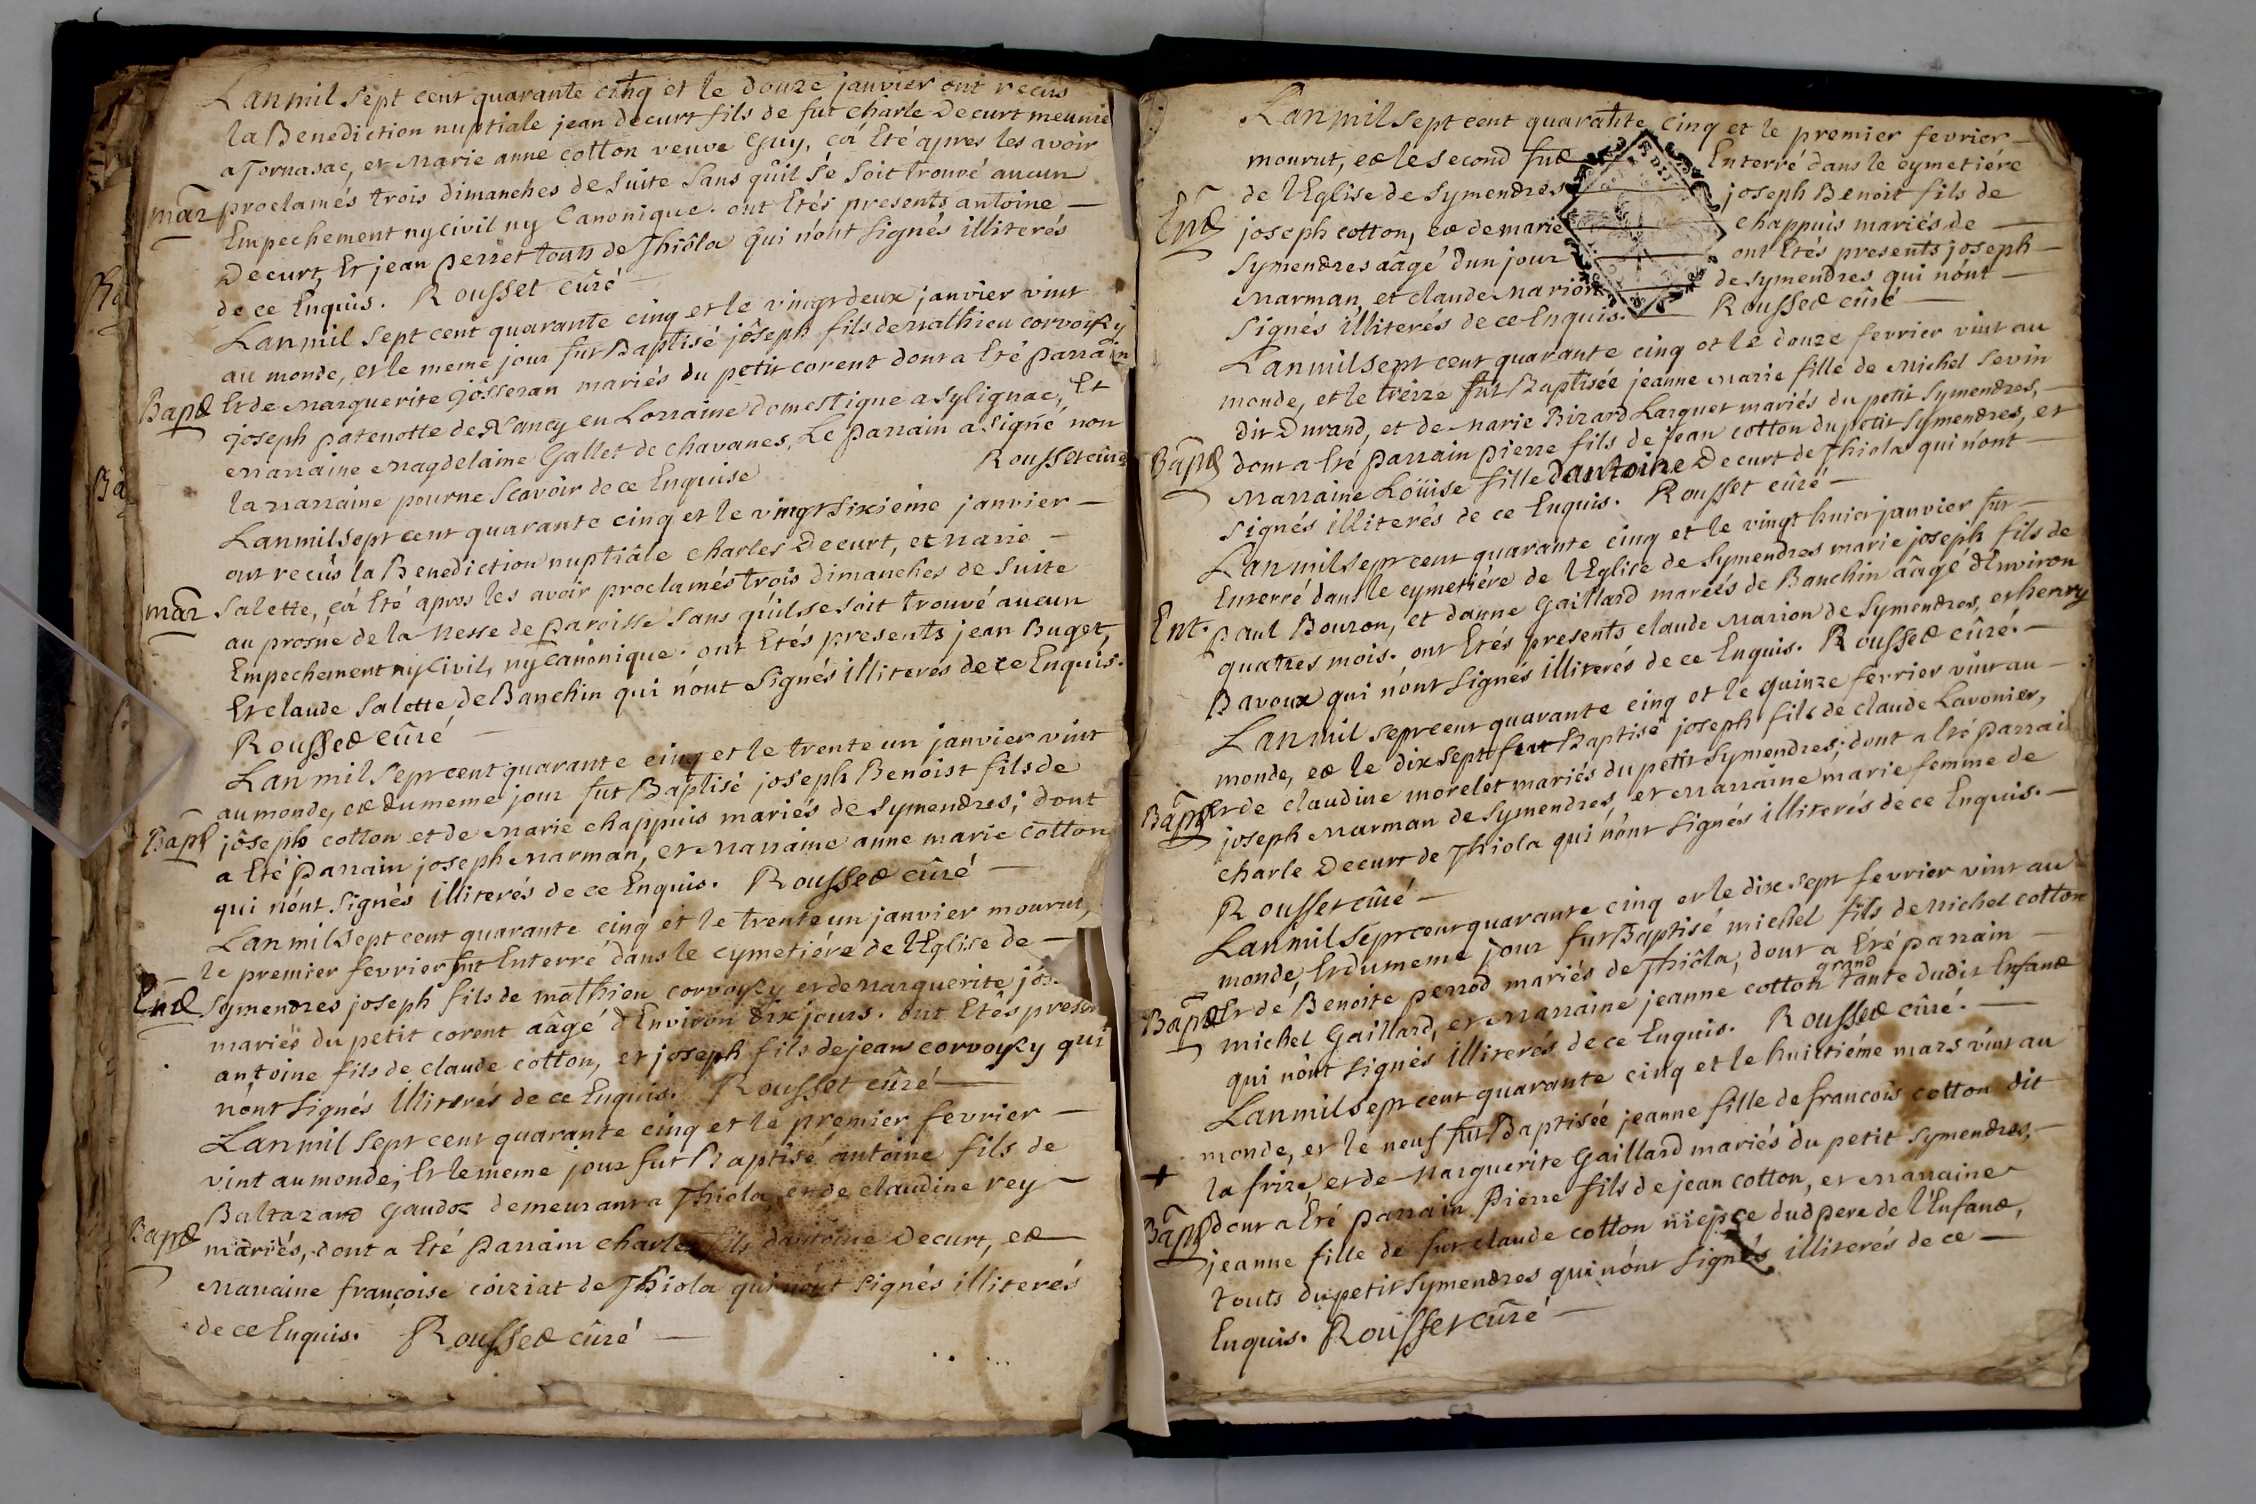 Lan mil sept cent quarante cinq et le douze janvier ont recus
la Benediction nuptiale jean decurt fils de fut charle Decurt meunie
a Tornasac, et Marie anne cotton veuve Guy, çá Eté apres les avoir
mar proclamés trois dimanches de suite sans quil se soit trouvé aucun
Empechement ny civil ny Canonique. ont Etés presents antoine
Decurt, Et jean perret touts de Thiôla qui nónt signés illiterés
de ce Enquis. Rousset cûré
Lan mil sept cent quarante cinq et le vingt deux janvier vint
au monde, et le meme jour fut Baptisé jôseph fils de Mathieu corvoysy
Bapt Et de Marguerite jôsseran mariés du petit corent dont a Eté parrain
joseph patenotte de Nancy en Lorraine domestique a Sylignac, Et
Marraine Magdelaine Gallet de chavanes, Le parrain a signé non
la Marraine pour ne Scavoir de ce Enquise Rousset cûré
Lan mil sept cent quarante cinq et le vingt sixiéme janvier
ont recûs la Benediction nuptiâle charles Decurt, et Marie
mar Salette, çá Eté apres les avoir proclamés trois dimanches de suite
au prosne de la Messe de paroisse sans quil se soit trouvé aucun
Empechement ny Civil, ny Canonique. ont Etés presents jean Buget,
Et claude Salette de Banchin qui nónt signés illiterés de ce Enquis.
Rousset cûré
Lan mil sept cent quarante cinq et le trente un janvier vint
au monde, et du meme jour fut Baptisé joseph Benoist fils de
Bapt jôseph cotton et de Marie chappuis mariés de Symendres; dont
a Eté parrain joseph Marman, et Marraine anne marie cotton
qui nónt signés illiterés de ce Enquis. Rousset cûré
Lan mil sept cent quarante cinq et le trente un janvier mourut,
le premier fevrier fut Enterré dans le cymetiére de lEglise de
Ent Symendres joseph fils de mathieu corvoysy et de Marguerite jôs
mariés du petit corent aâgé dEnviron dix jours. ont Etés presen
antoine fils de claude cotton, et joseph fils de jean corvoysy qui
nónt signés illiterés de ce Enquis. Rousset cûré
Lan mil sept cent quarante cinq et le premier fevrier
vint au monde, Et le meme jour fut Baptisé antoine fils de
Baltazard Gaudoz demeurant a Thiola, et de claudine rey
Bapt mariés, dont a Eté parrain charles fils dantoine Decurt, et
Marraine françoise coiziat de Thiola qui nónt signés illiterés
de ce Enquis. Rousset cûré
Lan mil sept cent quarante cinq et le premier fevrier
mourut, et le second fut Enterré dans le cymetiére
de lEglise de Symendres joseph Benoit fils de
Ent joseph cotton, et de marie chappuis mariés de
Symendres aâgé dun jour ont Etés presents joseph
Marman, et claude Marion de Symendres qui nónt
signés illiterés de ce Enquis. Rousset cûré
Lan mil sept cent quarante cinq et le douze fevrier vint au
monde, et le treize fut Baptisée jeanne Marie fille de Michel Sevin
dit Durand, et de Marie Bizard Larguet mariés du petit Symendres,
Bapt dont a Eté parrain pierre fils de jean cotton du petit Symendres, et
Marraine Loüise fille dantoine Decurt de Thiola qui nónt
signés illiterés de ce Enquis. Rousset cûré
Lan mil sept cent quarante cinq et le vingt huict janvier fut
Enterré dans le cymetiére de lEglise de Symendres marie joseph fils de
Ent. paul Bouzon, et danne Gaillard mariés de Banchin aâgé dEnviron
quatres mois. ont Etés presents claude Marion de Symendres, et henry
Bavoux qui nónt signés illiterés de ce Enquis. Rousset cûré.
Lan mil sept cent quarante cinq et le quinze fevrier vint au
monde, et le dix sept fut Baptisé joseph fils de claude Lavonier,
Bapt Et de claudine morelet mariés du petit Symendres; dont a Eté parrai
joseph Marman de Symendres, et Marraine marie femme de
charle Decurt de Thiola qui nónt signés illiterés de ce Enquis.
Rousset cûré
Lan mil sept cent quarante cinq et le dix sept fevrier vint au
monde, Et du meme jour fut Baptisé michel fils de Michel cotton
Bapt Et de Benoite perrod mariés de Thiôla, dont a Eté parrain
michel Gaillard, et Marraine jeanne cotton grand tante dudit Enfant
qui nónt signés illiterés de ce Enquis. Rousset cûré.
Lan mil sept cent quarante cinq et le huictiéme mars vint au
monde, et le neuf fut Baptisée jeanne fille de francois cotton dit
+ la frize et de Marguerite Gaillard mariés du petit Symendres,
Bapt dont a Eté parrain pierre fils de jean cotton, et Marraine
jeanne fille de fut claude cotton niepce dud pere de lEnfant,
touts du petit Symendres qui nónt signés illiterés de ce
Enquis. Rousset cûré